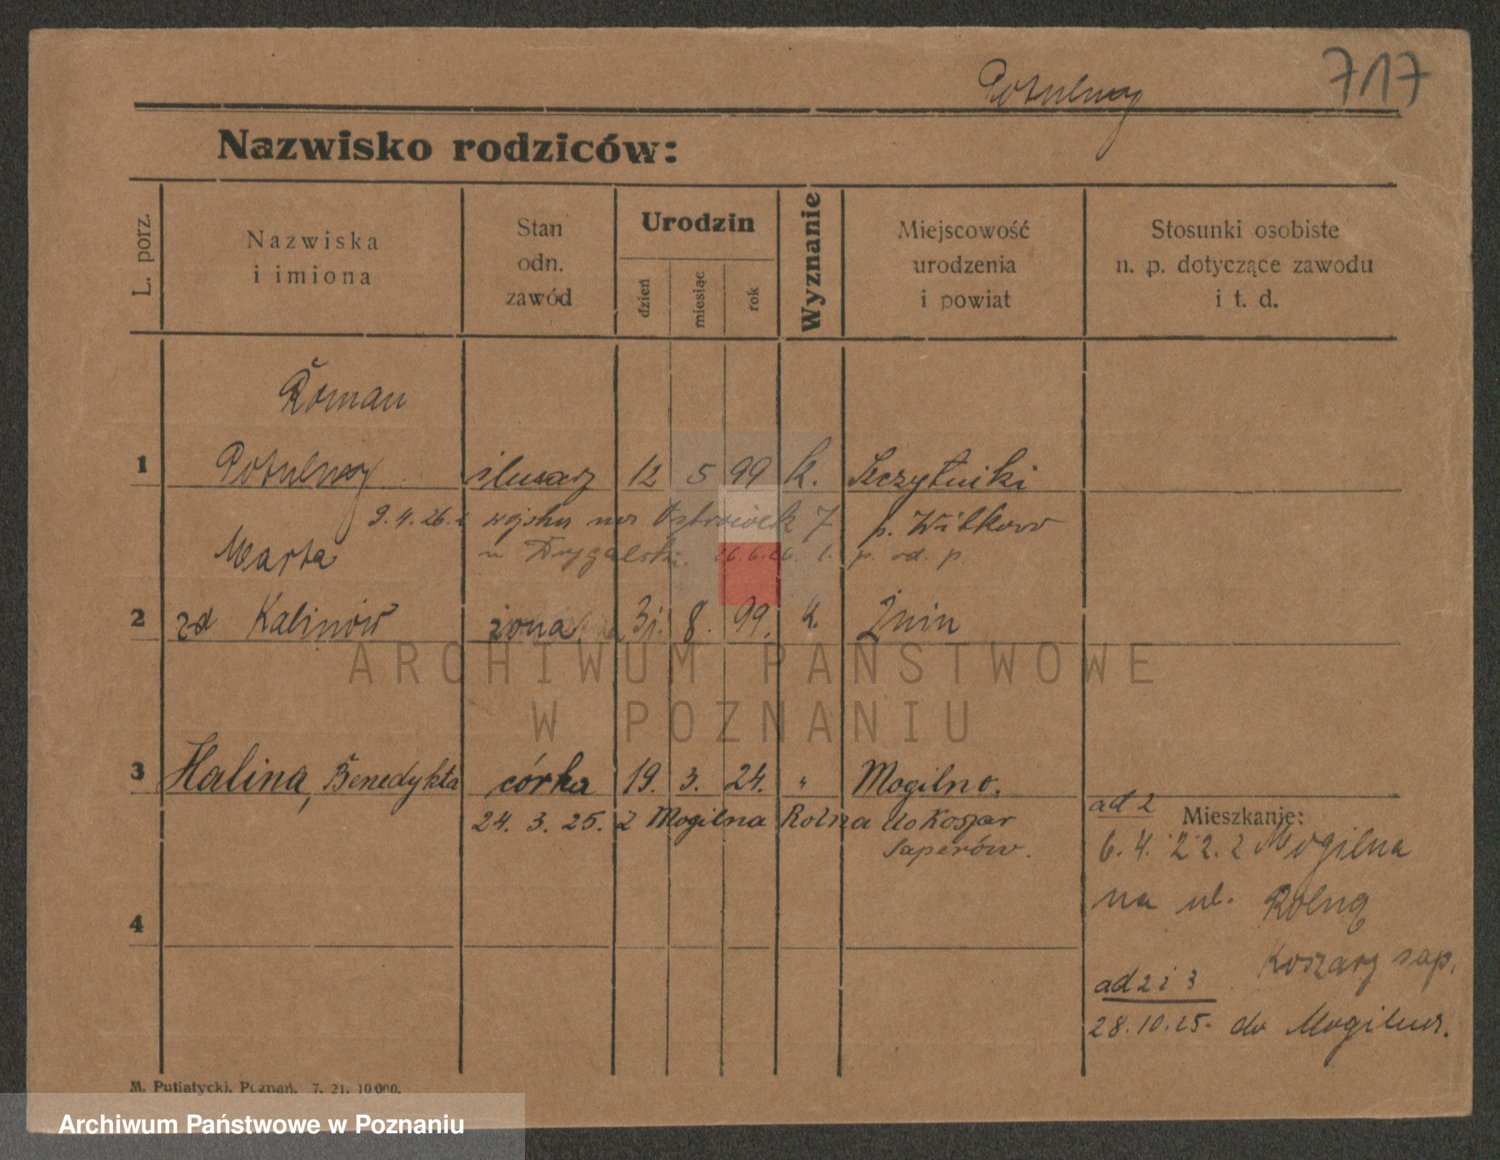 717
Potulny
Nazwisko rodziców:
L. porz.
Nazwiska
i imiona
Stan
odn.
zawód
Urodzin
dzień
miesiąc
rok
Wyznanie
Miejscowość
urodzenia
i powiat
Stosunki osobiste
n. p. dotyczące zawodu
i t. d.
Roman
1 Potulny ślusarz 12 5 99 k. Szczytniki
9.4.26. z wojska na Ostrówek 7 p. Witkowo
Marta 26.6.26. p. od. p.
2 zd Kalinów żona 31. 8. 99. k. Żnin
ARCHIWUM PAŃSTWOWE
W POZNANIU
3 Halina, Benedykta córka 19. 3. 24. " Mogilno.
24. 3. 25. z Mogilna Rolna do Koszar
Saperów.
ad 2 Mieszkanie:
6. 4. 22. z Mogilna
na ul. Rolną
4
Koszary sap.
ad 2 i 3
28.10.25. do Mogilna.
M. Putiatycki, Poznań. 7. 21. 10000.
Archiwum Państwowe w Poznaniu